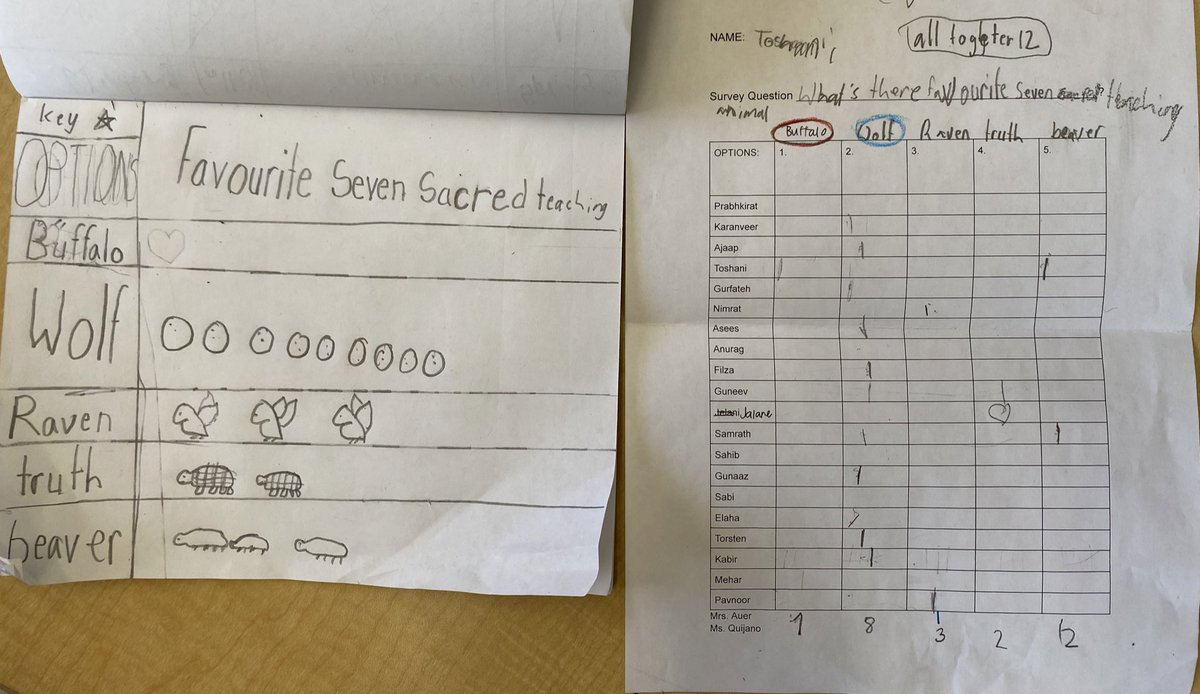 key
OPTIONS
Favourite Seven Sacred teaching
Buffalo
Wolf
Raven
truth
beaver
NAME:
all togeter 12
Survey Question What's there favourite Seven teaching
animal
Buffalo Wolf Raven truth beaver
OPTIONS: 1. 2. 3. 4. 5.
Prabhkirat
Karanveer
Ajaap
Toshani
Gurfateh
Nimrat
Asees
Anurag
Filza
Guneev
Jalane
Samrath
Sahib
Gunaaz
Sabi
Elaha
Torsten
Kabir
Mehar
Pavnoor
Mrs. Auer
Ms. Quijano
1 8 3 2 12